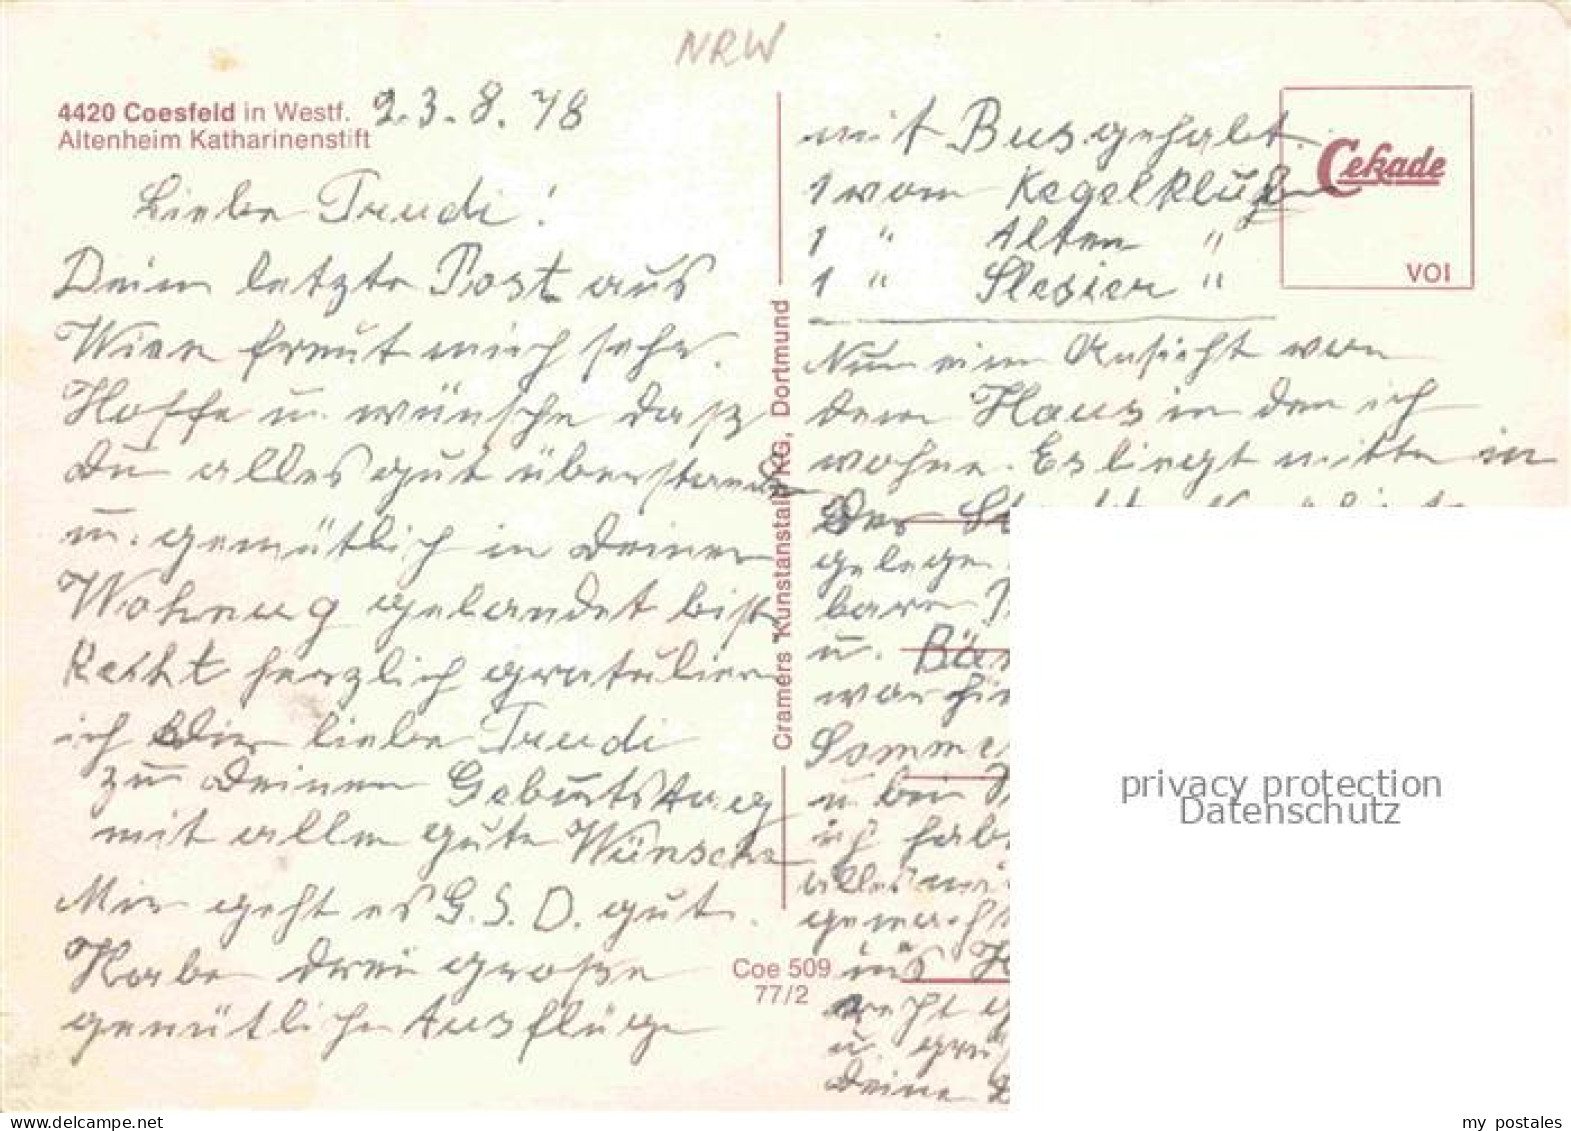 NRW
4420 Coesfeld in Westf.
Altenheim Katharinenstift
23.8.78
Liebe Trudi!
Deine letzte Post aus
Wien freut mich sehr.
Hoffe u. wünsche daß
Du alles gut überstanden
u. gemütlich in Deiner
Wohnung gelandet bist
Recht herzlich gratuliere
ich Dir liebe Trudi
zu Deinem Geburtstag
mit allen gute Wünsche
Mir geht es G.S.D. gut.
Habe drei große
gemütliche Ausflüge
Cramers Kunstanstalt KG, Dortmund
Coe 509
77/2
mit Bus gehabt.
1 vom Kegelklub
1 " Alten "
1 " Slesier "
Cekade
VOI
Nun eine Ansicht von
dem Haus in den ich
wohne. Es liegt mitten in
der
gelegen
u.
war hier
Sommer
u. bei
ich habe
alles
u.
Deine
privacy protection
Datenschutz
my postales